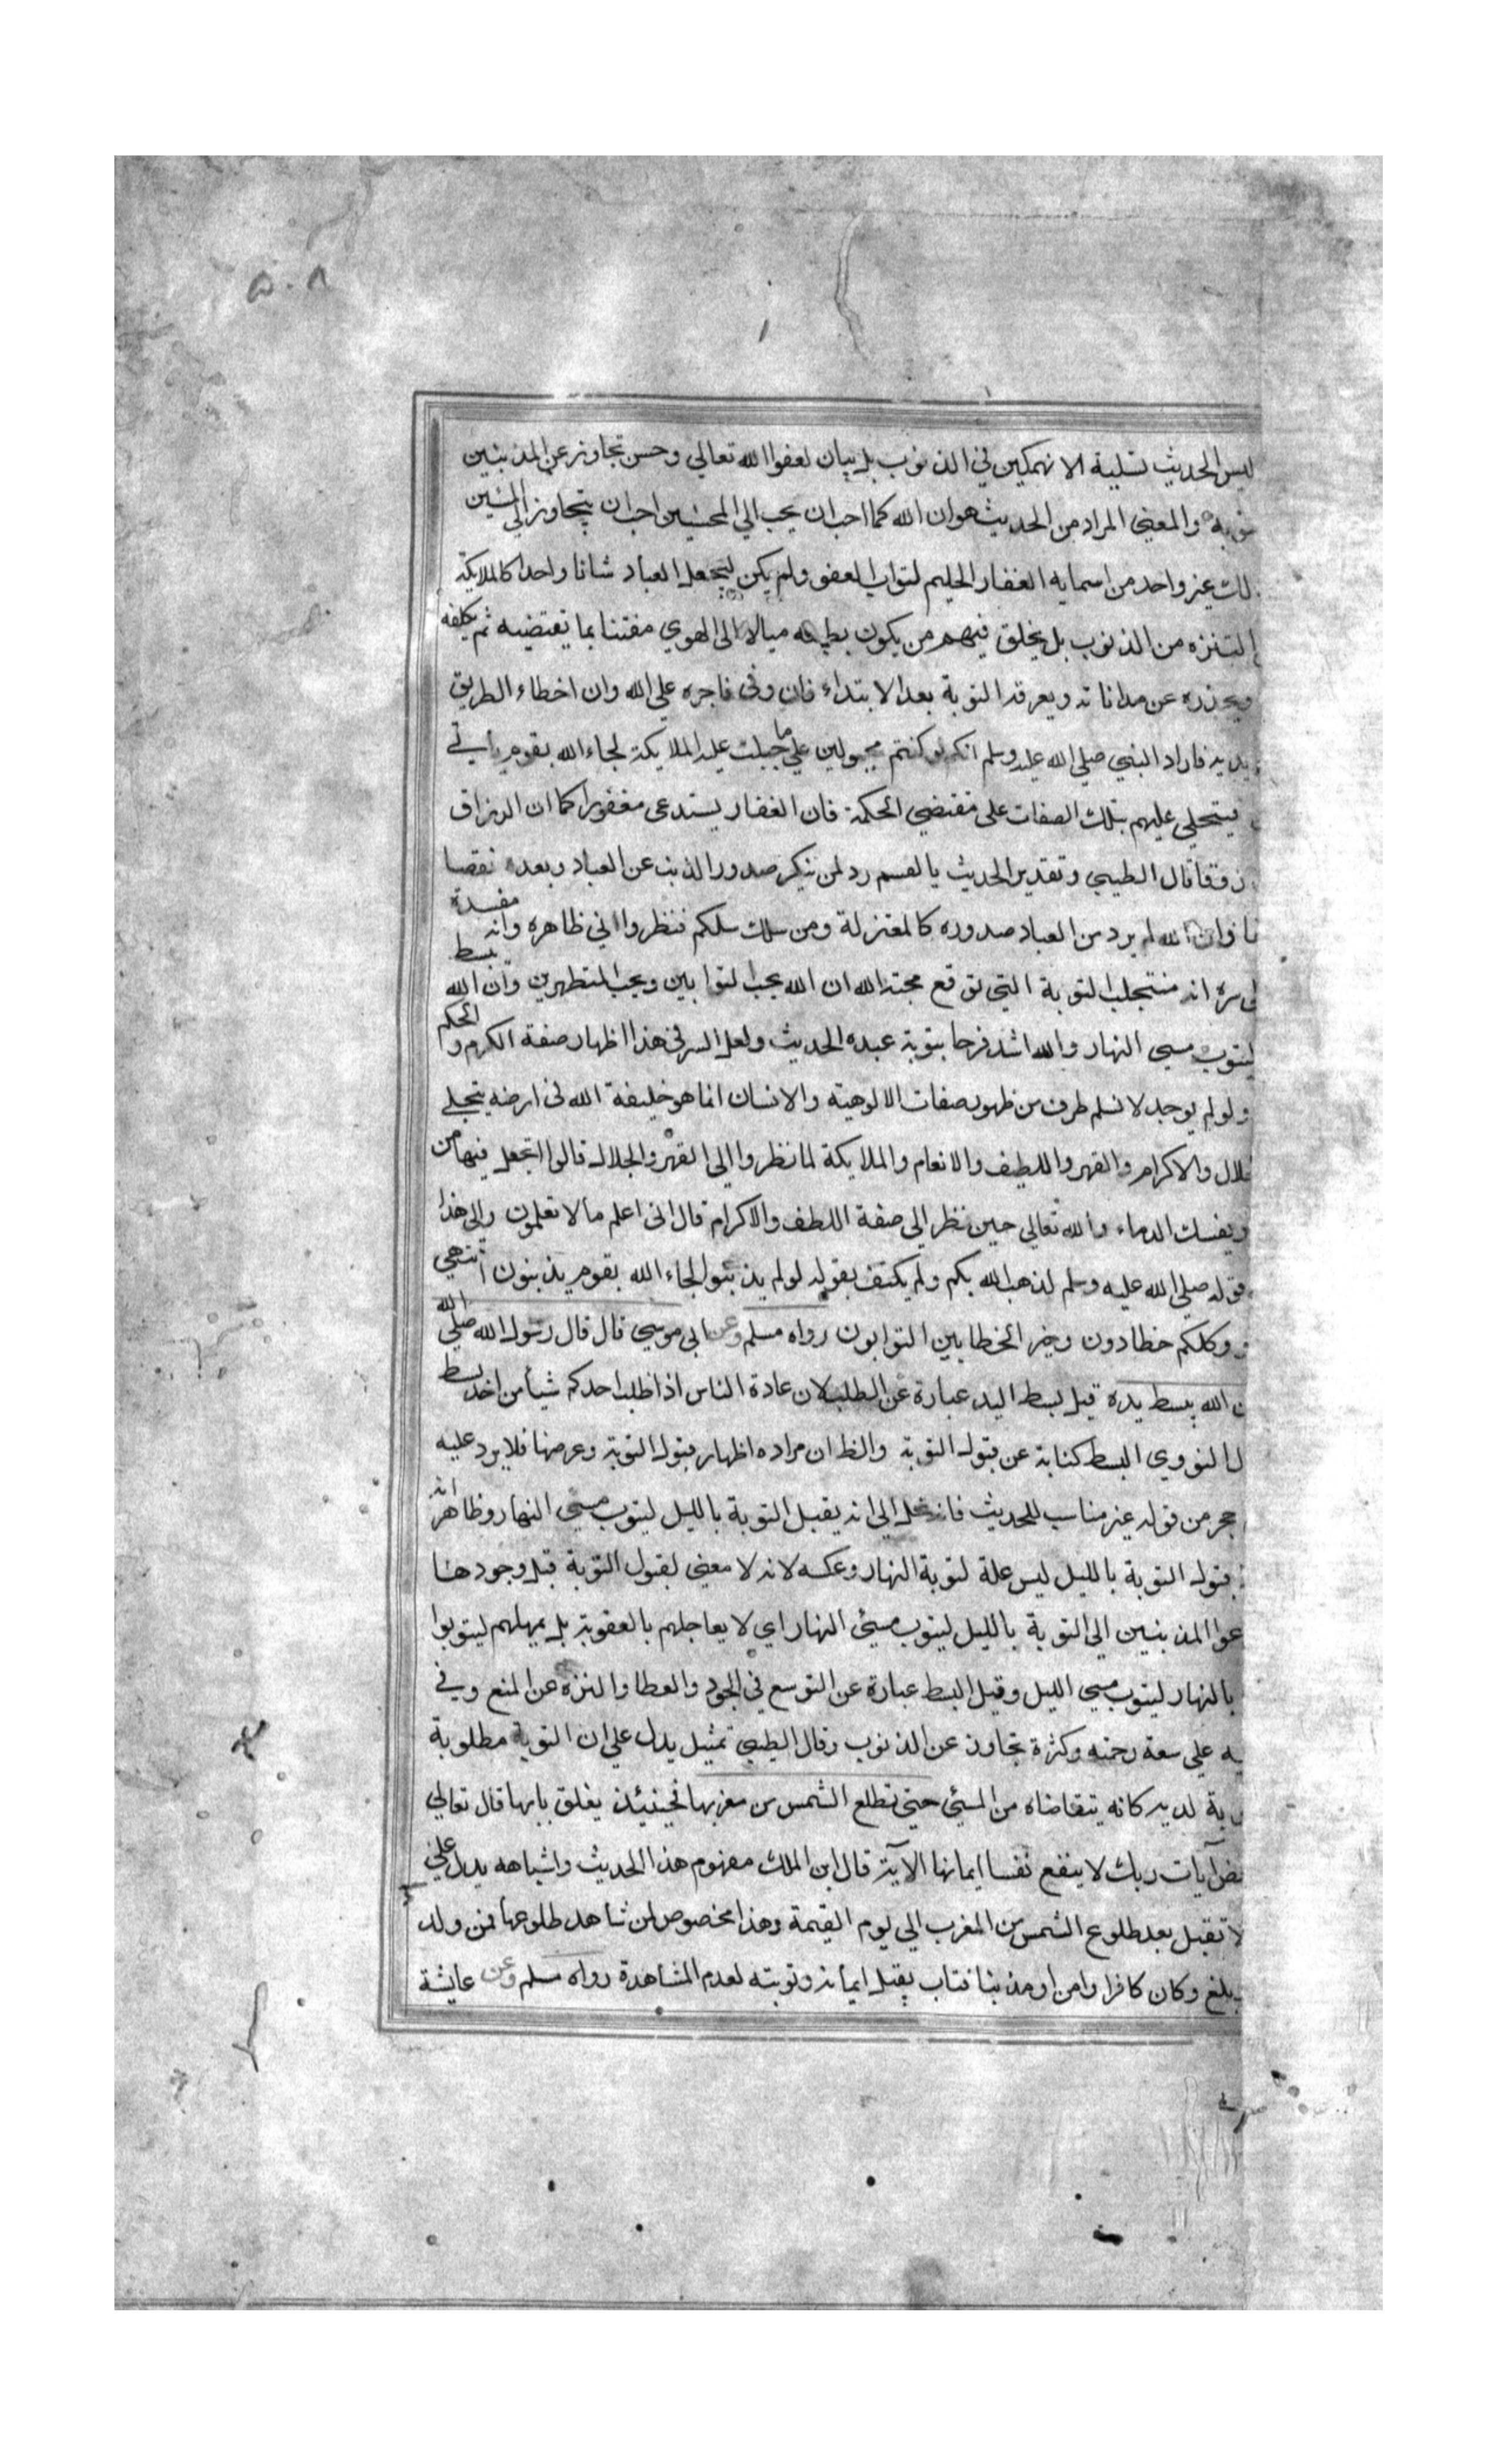 ٥٠٨
ليس الحديث تسلية للمنهمكين في الذنوب بل بيان لعفو الله تعالي وحسن تجاوز عن المذنبين
والمعني المراد من الحديث هو ان الله كما احب ان يحب الي المحسنين احب ان يتجاوز الي المسئين
غير واحد من اسمايه الغفار الحليم لتواب العفو ولم يكن ليجعل العباد شانا واحدا كالملايكة
التنزه من الذنوب بل يخلق فيهم من يكون ميالا الى الهوي مفتنا بما تقتضيه ثم يكلفه
ويحذره عن مداناته ويعرفه التوبة بعد الابتداء فان وفى فاجره علي الله وان اخطاء الطريق
فاراد النبي صلي الله عليه وسلم انكم لو كنتم مجبولين علي ما جبلت عليه الملايكة لجاء الله بقوم يأتي
فيتجلي عليهم بتلك الصفات على مقتضي الحكمة فان الغفار يستدعى مغفورا كما ان الرزاق
قال الطيبي وتقدير الحديث بالقسم رد لمن ينكر صدور الذنب عن العباد وبعده نقصا
وان الله لم يرد من العباد صدوره كالمعتزلة ومن سلك سلكم فنظروا الي ظاهره وانه مفسدة
سره انه مستجلب التوبة التي توقع محبته الله ان الله يحب التوابين ويحب المتطهرين وان الله يبسط
ليتوب مسي النهار والله اشد فرحا بتوبة عبده الحديث ولعل السر في هذا اظهار صفة الكرم و الحكم
ولو لم يوجد لانسلم طرف من ظهور صفات الالوهية والانسان انما هو خليفة الله في ارضه يتجلي
والاكرام والقهر واللطيف والانعام والملايكة لما نظروا الي القهر والجلال قالوا اتجعل فيها من
ويفسك الدماء والله تعالي حين نظر الي صفة اللطف والاكرام قال انى اعلم ما لا تعلمون والى هذا
قوله صلي الله عليه وسلم لذهب الله بكم ولم يكتف بقوله لو لم يذنبوا لجاء الله بقوم يذنبون انتهي
وكلكم خطادون وخير الخطايين التوابون رواه مسلم وعن ابى موسي قال قال رسول الله صلي الله
الله يبسط يده قيل بسط اليد عبارة عن الطلب لان عادة الناس اذا طلب احدكم شيأ من اخد بسط
النووي البسط كناية عن قبول التوبة والظ ان مراده اظهار قبول التوبة وعرضها فلا يرد عليه
حجر من قوله غير مناسب للحديث فانه الي انه يقبل التوبة بالليل ليتوب مسي النهار وظاهر انه
قبول التوبة بالليل ليس علة لتوبة النهار وعكسه لانه لا معني لقبول التوبة قبل وجودها
المذنبين الي التوبة بالليل ليتوب مسئ النهار اي لا يعاجلهم بالعقوبة بل يمهلهم ليتوبوا
بالنهار ليتوب مسي الليل وقيل البسط عبارة عن التوسع في الجود والعطا والنزه عن المنع وفي
علي سعة رحمته وكثرة تجاوز عن الذنوب وقال الطيبي تمثيل يدل علي ان التوبة مطلوبة
لديه كانه يتقاضاه من المسئ حتي تطلع الشمس من مغربها فحينئذ يغلق بابها قال تعالي
آيات ربك لا ينفع نفسا ايمانها الآية قال ابن الملك مفهوم هذا الحديث واشباهه يدل علي
لا تقبل بعد طلوع الشمس من المغرب الي يوم القيمة وهذا مخصوص لمن شاهد طلوعها فمن ولد
وكان كافرا وامن او مذنبا فتاب يقبل ايمانه وتوبته لعدم المشاهدة رواه مسلم وعن عايشة